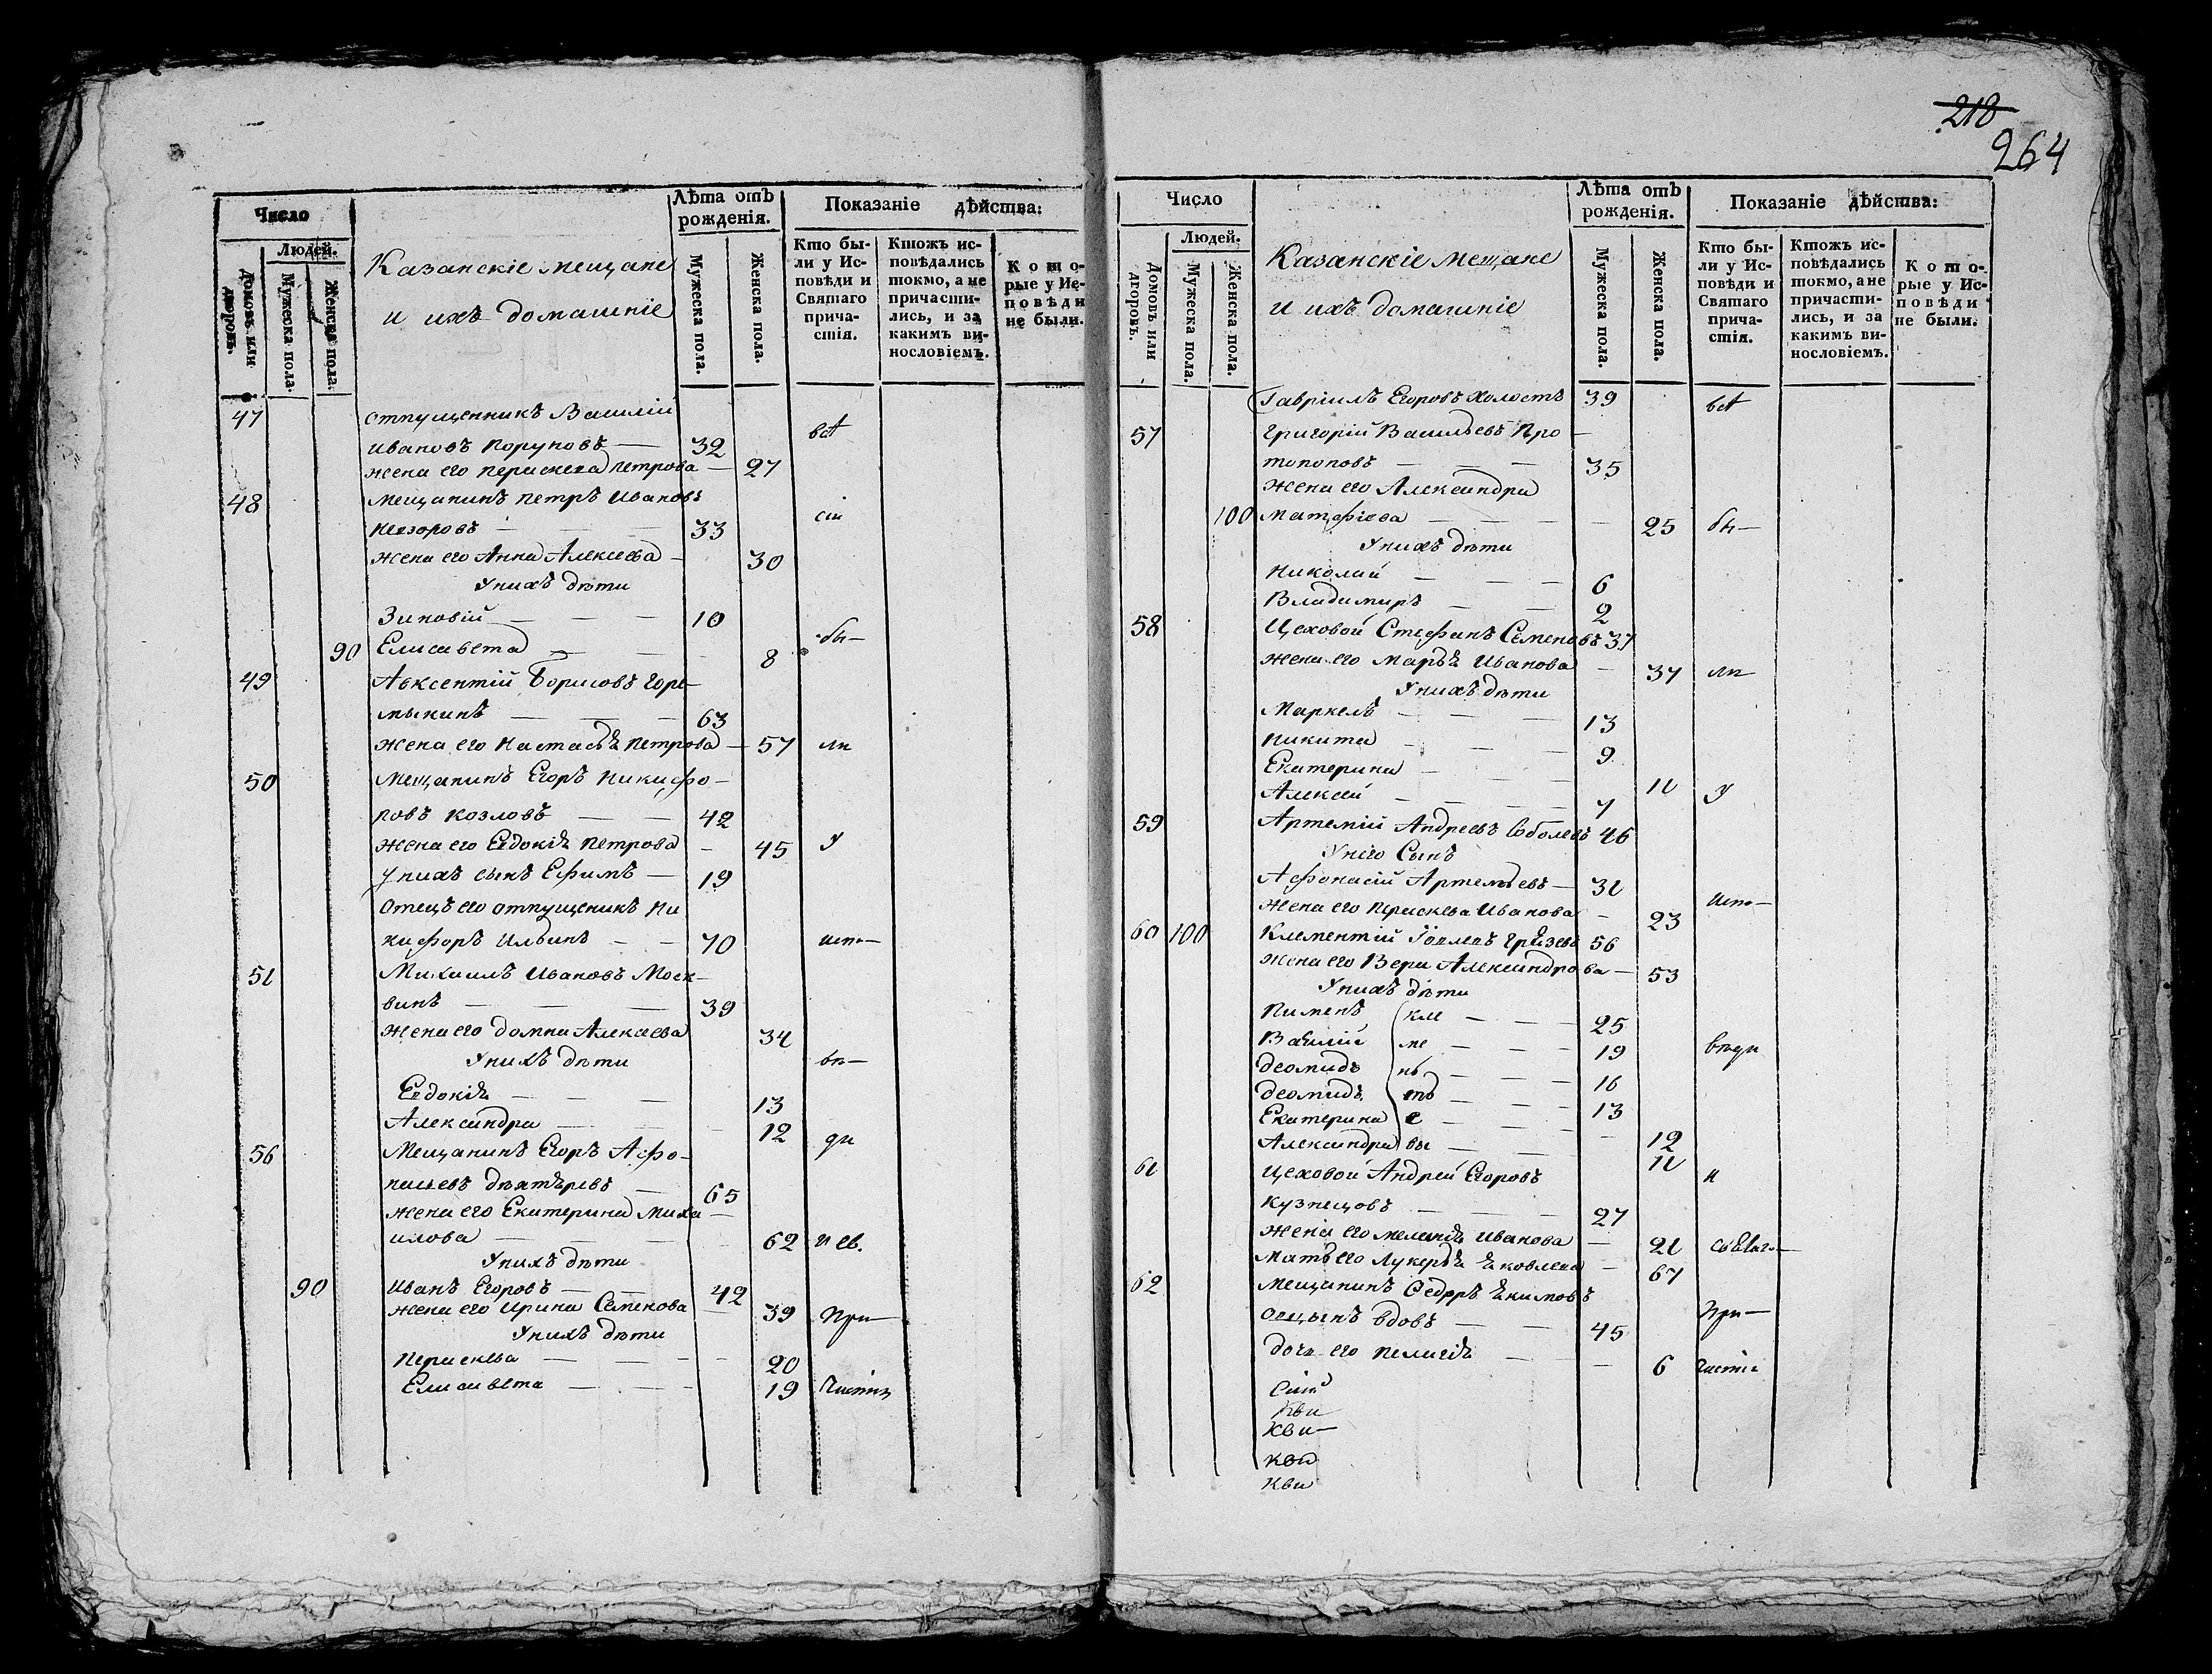 218
264
Число
Людей.
Домовъ или дворовъ.
Мужеска пола.
Женска пола.
Казанскіе мещане
и ихъ домашніе
Лѣта отъ рожденія.
Мужеска пола.
Женска пола.
Показаніе дѣйства:
Кто бы-
ли у Ис-
повѣди и
Святаго
прича-
стія.
Ктожъ ис-
повѣдались
токмо, а не
причасти-
лись, и за
какимъ ви-
нословіемъ.
Кото-
рые у Ис-
повѣди
не были.
47 отпущенникъ Василій всѣ
Ивановъ Поруновъ — 32
жена его Параскева Петрова — 27
48 Мещанинъ Петръ Ивановъ
33 сіи
жена его Анна Алексеева — 30
У нихъ дѣти
Зиновій — 10
90 Елисавета — 8 бы—
49 Авксентій Борисовъ Горе-
мыкинъ — 63
жена его Настасья Петрова — 57 ли
50 Мещанинъ Егоръ Никифо-
ровъ Козловъ — 42
жена его Евдокія Петрова — 45 у
у нихъ сынъ Ефимъ — 19
отецъ его отпущеникъ Ни
кифоръ Ильинъ — 70 испо—
51 Михаилъ Ивановъ Моск-
винъ — 39
жена его Домна Алексеева 34
У нихъ дѣти вѣ—
Евдокія — 13
Александра — 12 ди
56 Мещанинъ Егоръ Афо-
насьевъ 65
жена его Екатерина Миха-
илова — 62 и св.
У нихъ дѣти
90 Иванъ Егоровъ — 42
жена его Ирина Семенова 39 при—
У нихъ дѣти
Параскева — 20
Елисавета — 19 частія
Число
Людей.
Домовъ или дворовъ.
Мужеска пола.
Женска пола.
Казанскіе Мещане
и ихъ домашніе
Лѣта отъ рожденія.
Мужеска пола.
Женска пола.
Показаніе дѣйства:
Кто бы-
ли у Ис-
повѣди и
Святаго
прича-
стія.
Ктожъ ис-
повѣдались
токмо, а не
причасти-
лись, и за
какимъ ви-
нословіемъ.
Кото-
рые у Ис-
повѣди
не были.
Гавріилъ Егоровъ холостъ 39 всѣ
57 Григорій Васильевъ Про—
топоповъ — 35
жена его Александра
100 Матфіева — 25 бы—
У нихъ дѣти
Николай — 6
Владимиръ — 2
58 Цеховой Стефанъ Семеновъ 37
жена его Марья Иванова — 37 ли
У нихъ дѣти
Маркелъ — 13
Никита — 9
Екатерина — 11 у
Алексей — 7
59 Артемій Андреевъ Соболевъ 46
У него Сынъ
Афонасій Артемьевъ — 31 испо—
жена его Параскева Иванова — 23
60 100 Клементій 56
жена его Вера Александрова — 53
У нихъ дѣти
Пименъ кле — 25
Василій ме — 19 вѣди
Деомидъ нь — 16
Деомидъ тъ — 13
Екатерина е — 12
Александра вы — 11
61 Цеховой Андрей Егоровъ и
Кузнецовъ — 27
жена его Меланья Иванова — 21 святаго—
Мать его Лукерья Яковлева — 67
62 Мещанинъ Федоръ Якимовъ
вдовъ — 45 при—
дочь его Пелагія — 6 частія
Кви
Кви—
Кви
Кви